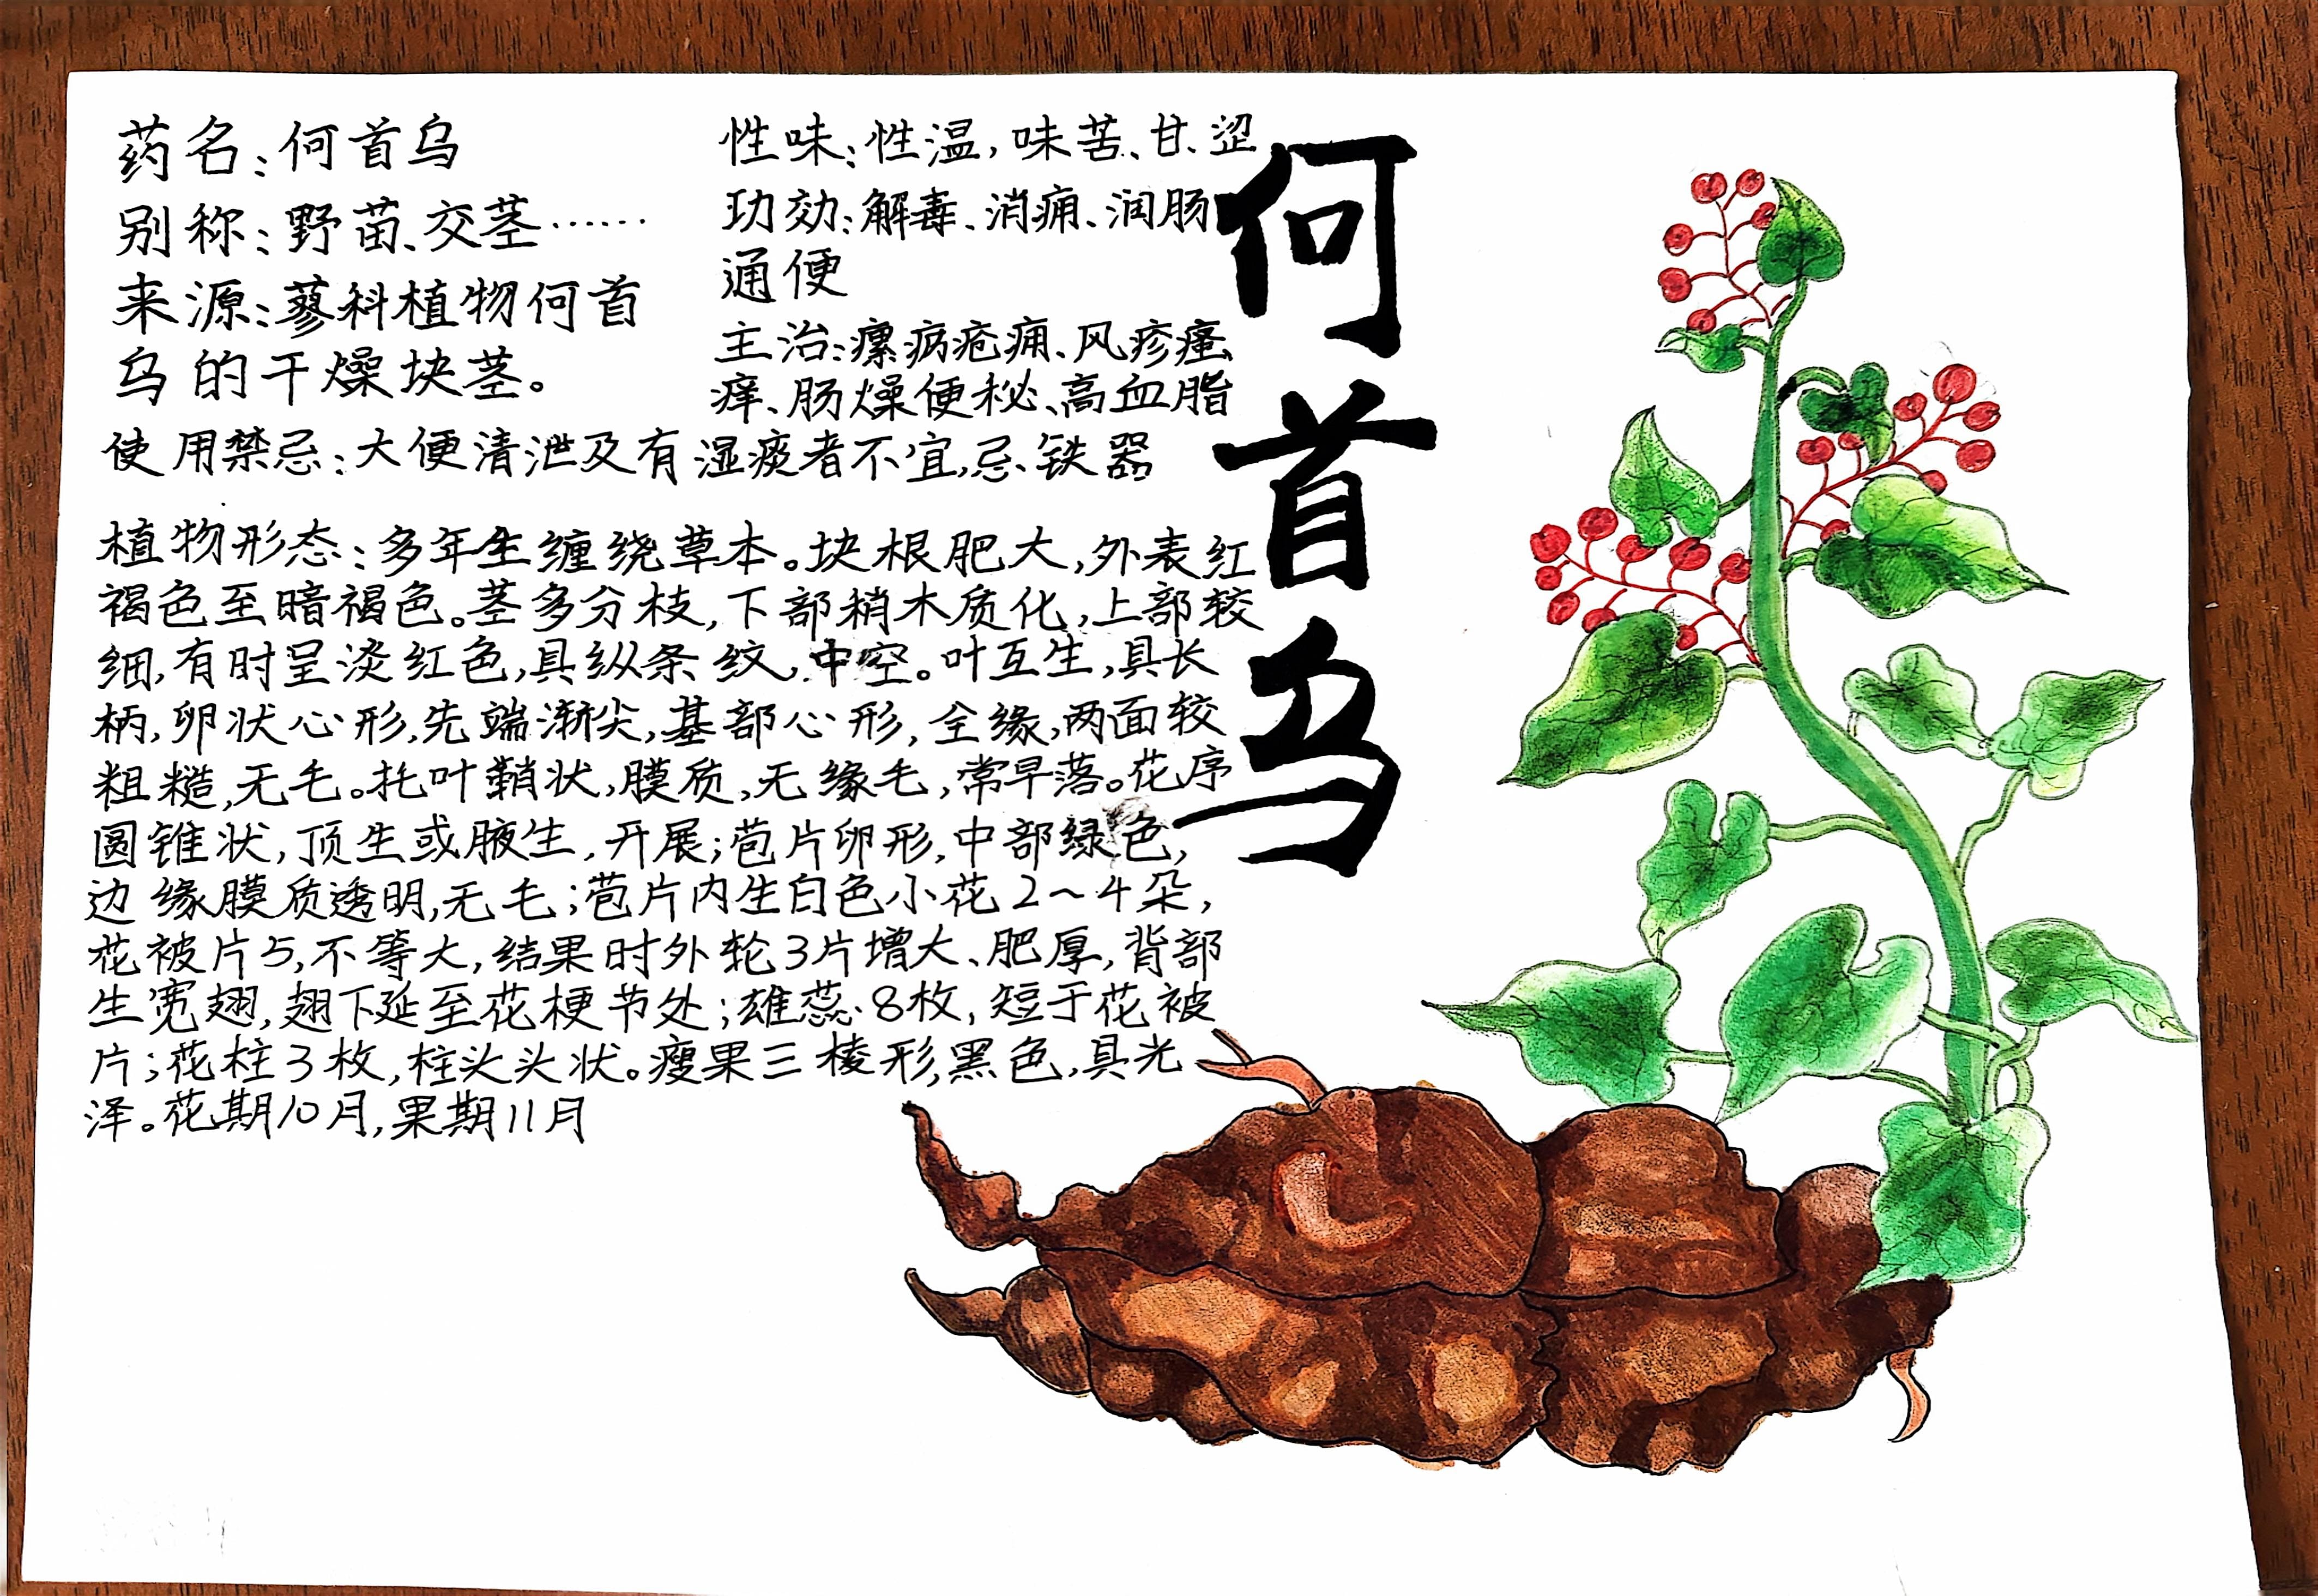 药名:何首乌
别称:野苗、交茎……
来源:蓼科植物何首
乌的干燥块茎。
性味:性温,味苦、甘、涩
功效:解毒、消痈、润肠
通便
主治:瘰病疮痈、风疹瘙
痒、肠燥便秘、高血脂
使用禁忌:大便清泄及有湿痰者不宜,忌铁器
植物形态:多年生缠绕草本。块根肥大,外表红
褐色至暗褐色。茎多分枝,下部稍木质化,上部较
细,有时呈淡红色,具纵条纹,中空。叶互生,具长
柄,卵状心形,先端渐尖,基部心形,全缘,两面较
粗糙,无毛。托叶鞘状,膜质,无缘毛,常早落。花序
圆锥状,顶生或腋生,开展;苞片卵形,中部绿色,
边缘膜质透明,无毛;苞片内生白色小花2~4朵,
花被片5,不等大,结果时外轮3片增大、肥厚,背部
生宽翅,翅下延至花梗节处;雄蕊8枚,短于花被
片;花柱3枚,柱头头状。瘦果三棱形,黑色,具光
泽。花期10月,果期11月
何首乌